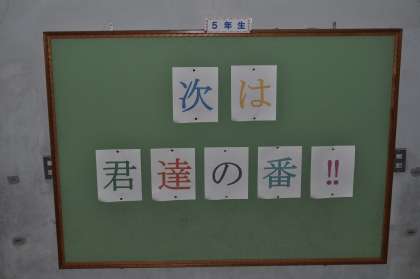 5年生
次は
君達の番!!